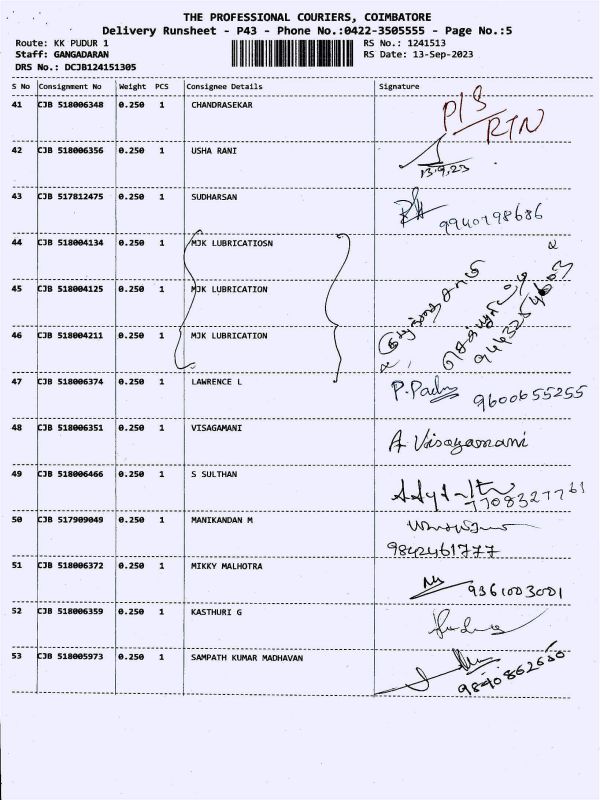 THE PROFESSIONAL COURIERS, COIMBATORE
Delivery Runsheet - P43 - Phone No.:0422-3505555 - Page No.:5
Route: KK PUDUR 1 RS No.: 1241513
Staff: GANGADARAN RS Date: 13-Sep-2023
DRS No.: DCJB124151305
S No Consignment No Weight PCS Consignee Details Signature
41 CJB 518006348 0.250 1 CHANDRASEKAR P/S
RTN
42 CJB 518006356 0.250 1 USHA RANI
13.9.23
43 CJB 517812475 0.250 1 SUDHARSAN
9940798686
44 CJB 518004134 0.250 1 MJK LUBRICATIOSN
45 CJB 518004125 0.250 1 MJK LUBRICATION
46 CJB 518004211 0.250 1 MJK LUBRICATION
47 CJB 518006374 0.250 1 LAWRENCE L P.Padma 9600655255
48 CJB 518006351 0.250 1 VISAGAMANI
A Visagamani
49 CJB 518006466 0.250 1 S SULTHAN
7708327761
50 CJB 517909049 0.250 1 MANIKANDAN M
9842461777
51 CJB 518006372 0.250 1 MIKKY MALHOTRA
9361003001
52 CJB 518006359 0.250 1 KASTHURI G
53 CJB 518005973 0.250 1 SAMPATH KUMAR MADHAVAN
9840862630